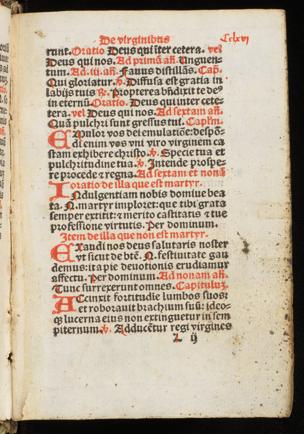 De virginibus Cclxvj
runt. Oratio Deus qui iter cetera. vel
Deus qui nos. Ad primã añ. Unguen-
tum. Ad .iij. añ. Fauus distillãs. Cap.
Qui gloriatur. ℣. Diffusa est gratia in
labijs tuis ℟. Propterea bñdixit te de⁹
in eternũ. Oratio. Deus qui inter cete-
tera. vel Deus qui nos. Ad sextam añ.
Quã pulchri sunt gressus tui. Capłm.
Emulor vos dei emulatiõe: despõ-
di enim vos vni viro virginem ca
stam exhibere christo. ℣. Specie tua et
pulchritudine tua. ℟. Intende prospe-
re procede ⁊ regna. Ad sextam et nonã
oratio de illa que est martyr.
Indulgentiam nobis domine bea
ta .N. martyr imploret: que tibi grata
semper extitit: ⁊ merito castitatis ⁊ tue
professione virtutis. Per dominum.
Item de illa que non est martyr.
Exaudi nos deus salutaris noster
vt sicut de btẽ .N. festiuitate gau
demus: ita pie deuotionis erudiamur
affectu. Per dominum. Ad nonam añ.
Tunc surrexerunt omnes. Capitulũ.
Accinxit fortitudie lumbos suos:
et roborauit brachium suũ: ideo-
qз lucerna eius non extinguetur in sem
piternum. ℣. Adducẽtur regi virgines
L ij